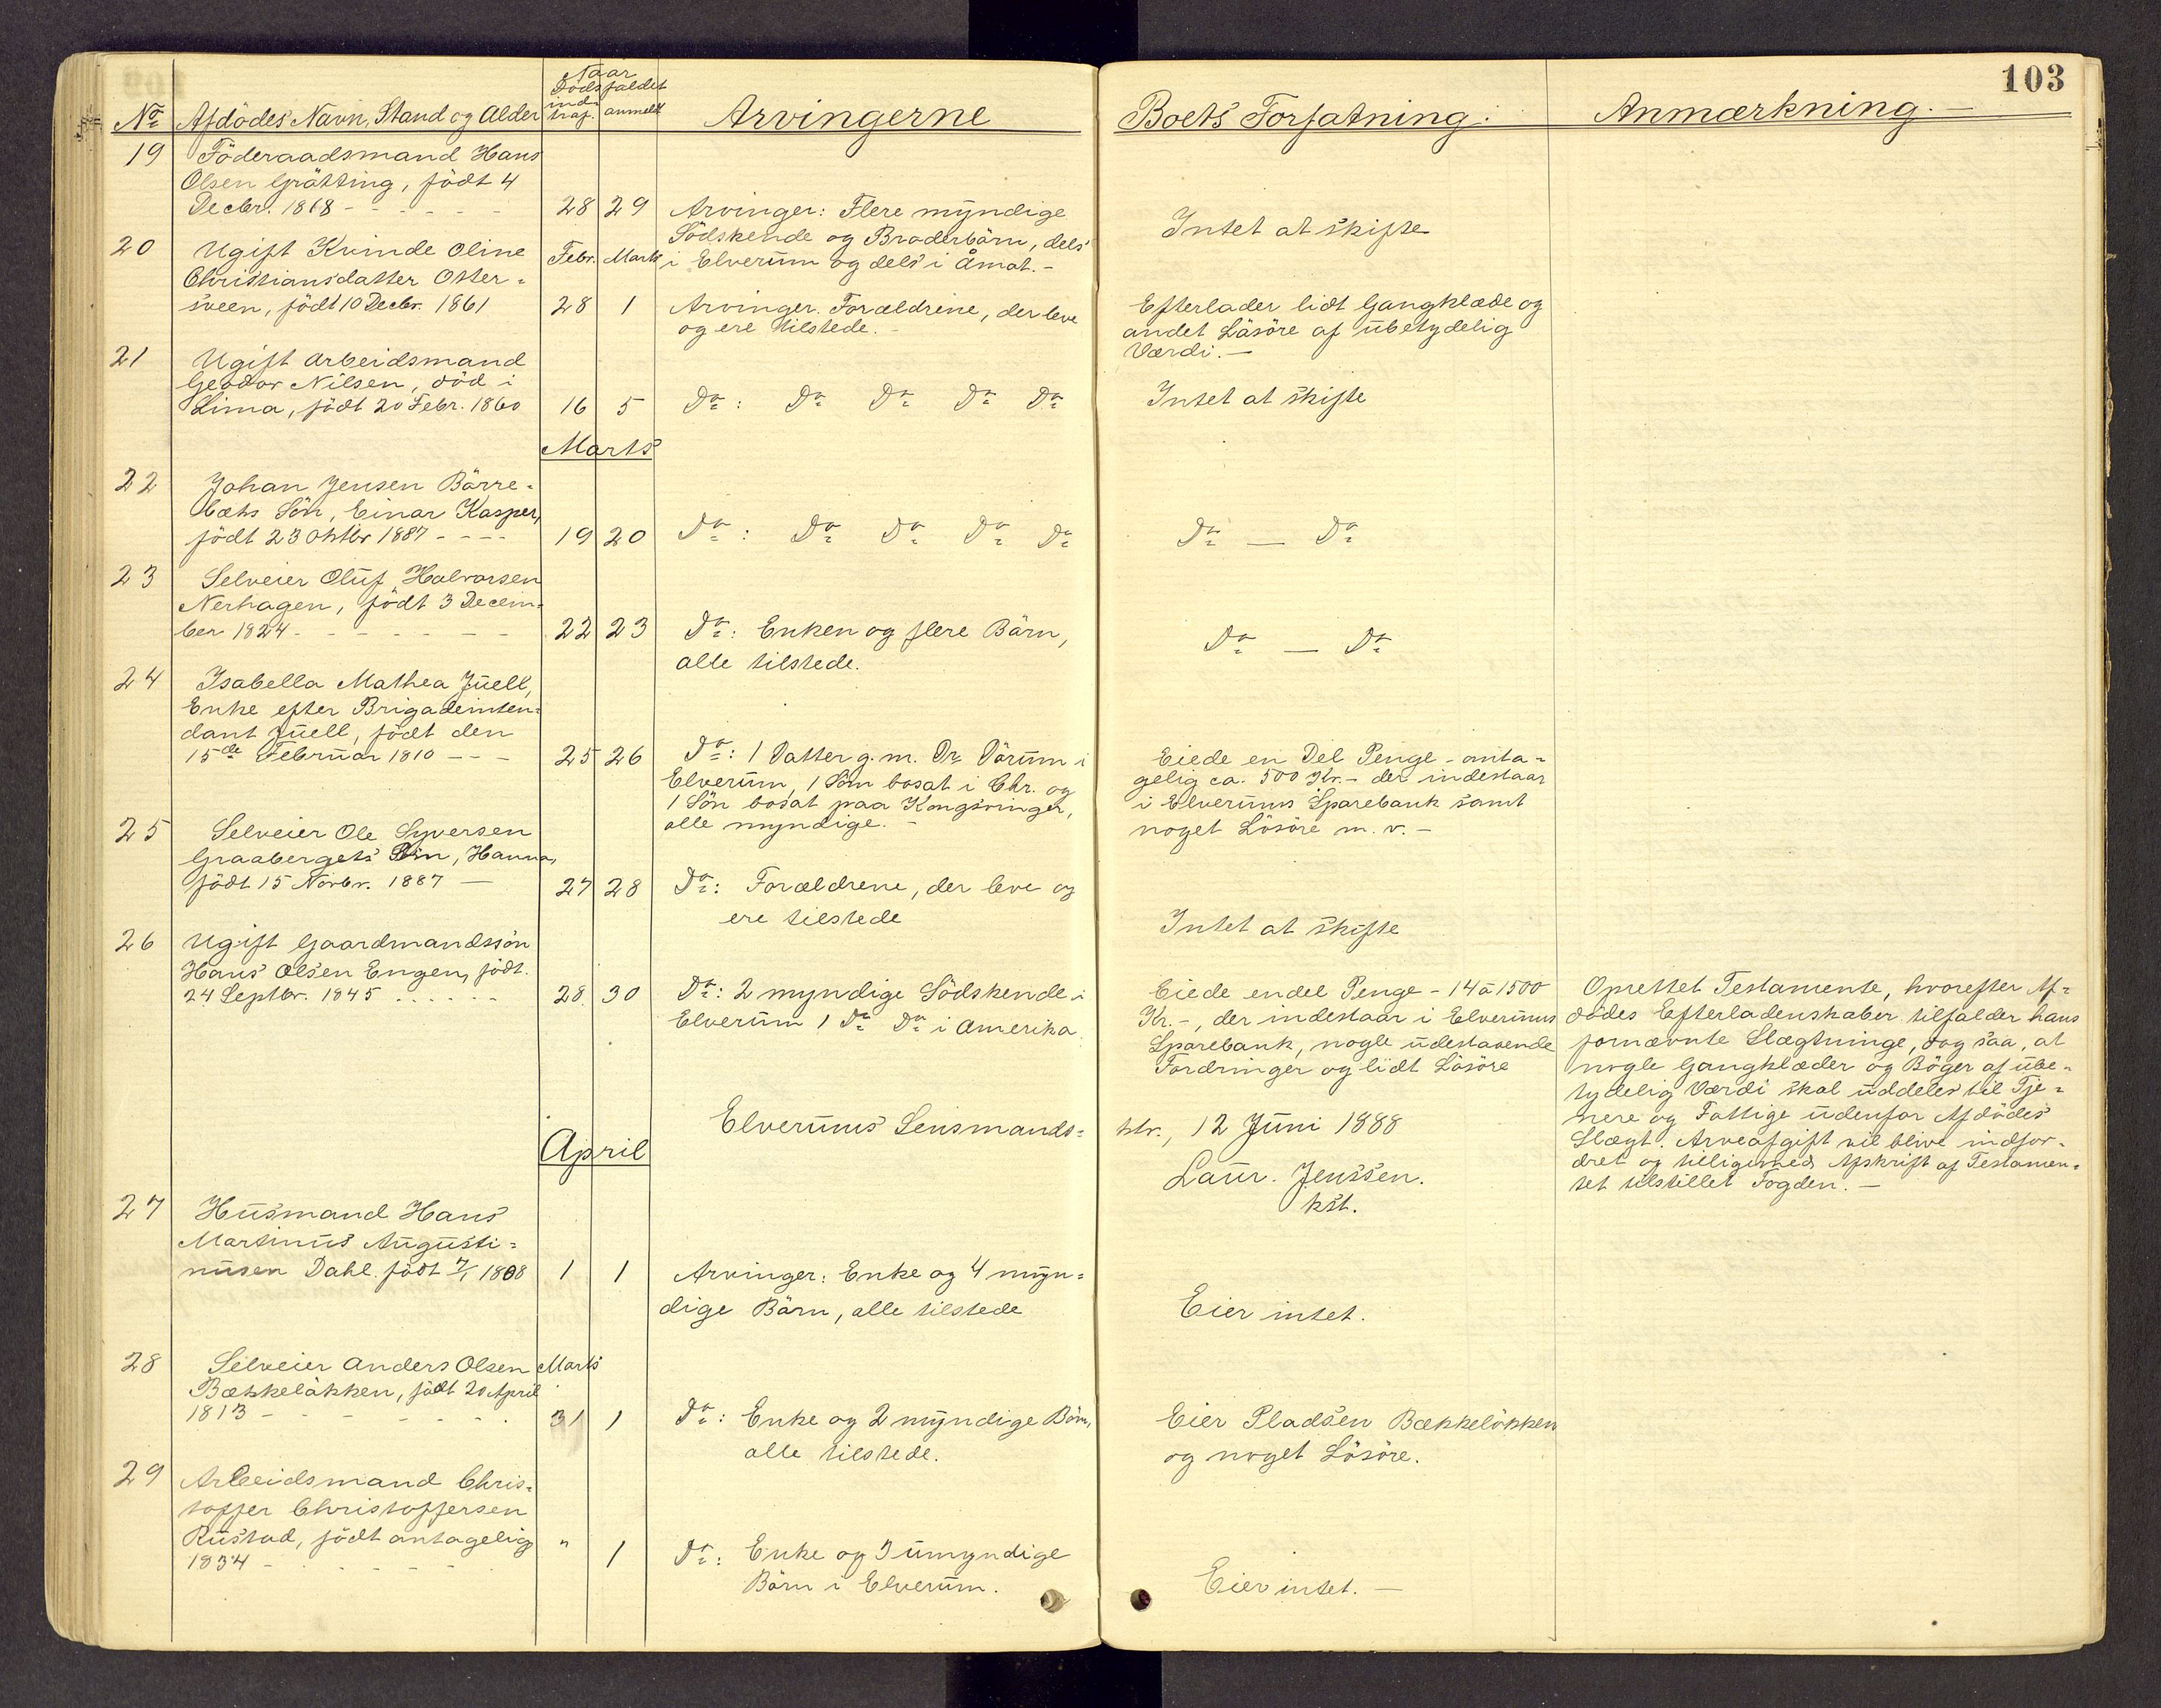 103
No Afdödes Navn, Stand og Alder
Naar Dödsfaldet
indtraf. anmeldt
Arvingerne
Boets Forfatning.
Anmærkning.
19 Föderaadsmand Hans
Olsen Grätting, födt 4
Decbr. 1818 - - - - - 28 29 Arvinger: Flere myndige
Södskende og Broderbörn, dels
i Elverum og dels i Åmot. -
Intet at skifte
20 Ugift Kvinde Oline Febr. Marts
Christiansdatter Otter-
sveen, födt 10 Decbr. 1861 28 1 Arvinger. Forældrene, der leve
og ere tilstede. -
Efterlader lidt Gangklæde og
andet Lösöre af ubetydelig
Værdi. -
21 Ugift Arbeidsmand
Geodor Nilsen, död i
Lima, födt 20 Febr. 1860 16 5 Do: Do Do Do Do
Intet at skifte
Marts
22 Johan Jensen Börre-
bæks Sön, Einar Kasper,
födt 23 Oktbr 1887 - - - - 19 20 Do: Do Do Do Do
Do - Do
23 Selveier Oluf Halvorsen
Nerhagen, födt 3 Decem-
ber 1824 - - - - - - 22 23 Do: Enken og flere Börn,
alle tilstede.
Do - Do
24 Isabella Mathea Juell,
Enke efter Brigadeinten-
dant Juell, födt den
15de Februar 1810 - - - 25 26 Do: 1 Datter g. m. Dr. Dörum i
Elverum, 1 Sön bosat i Chr. og
1 Sön bosat paa Kongsvinger,
alle myndige. -
Eiede en Del Penge - anta-
gelig ca. 500 Kr. - der indestaar
i Elverums Sparebank samt
noget Lösöre m. v. -
25 Selveier Ole Syversen
Graabergets Barn, Hanna,
födt 15 Novbr. 1887 - 27 28 Do: Forældrene, der leve og
ere tilstede
Intet at skifte
26 Ugift Gaardmandssön
Hans Olsen Engen, födt
24 Septbr. 1845 . . . . . . 28 30 Do: 2 myndige Södskende i
Elverum 1 Do Do i Amerika
Eiede endel Penge - 14 à 1500
Kr. -, der indestaar i Elverums
Sparebank, nogle udestaaende
Fordringer og lidt Lösöre
Oprettet Testamente, hvorefter Af-
dödes Efterladenskaber tilfalder hans
fornævnte Slægtninge, dog saa, at
nogle Gangklæder og Böger af ube-
tydelig Værdi skal uddeles til Tje-
nere og Fattige udenfor Afdödes
Slægt. Arveafgift vil blive indfor-
dret og tilligemed Afskrift af Testamen-
tet tilstillet Fogden. -
Elverums Lensmands-
ktr., 12 Juni 1888
Laur. Jenssen.
kst.
April
27 Husmand Hans
Martinus Augusti-
nusen Dahl födt 7/1 1808 1 1 Arvinger: Enke og 4 myn-
dige Börn, alle tilstede
Eier intet.
28 Selveier Anders Olsen Marts
Bækkelökken, födt 20 April
1813 - - - - - - 31 1 Do: Enke og 2 myndige Börn,
alle tilstede.
Eier Pladsen Bækkelökken
og noget Lösöre.
29 Arbeidsmand Chris-
toffer Christoffersen
Rustad, födt antagelig
1834 - - - - " 1 Do: Enke og umyndige
Börn i Elverum.
Eier intet. -